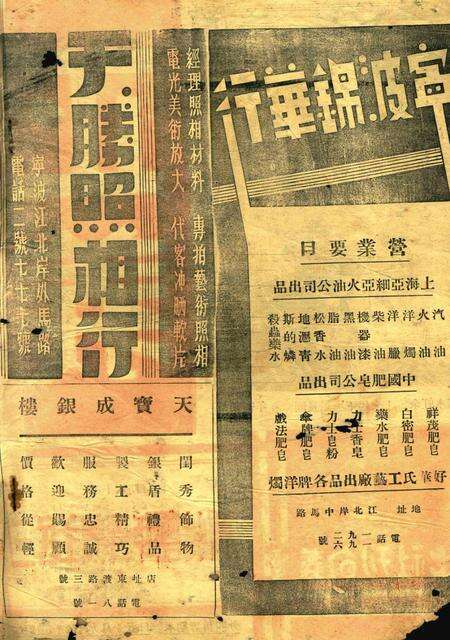 寧波錦華行
營業要目
上海亞細亞火油公司出品
汽油
火油
洋燭
洋臘
柴油
機器漆
黑油
脂油
松香水
地瀝青
斯的燐
殺蟲藥水
中國肥皂公司出品
祥茂肥皂
白密肥皂
藥水肥皂
力士香皂
力士皂粉
傘牌肥皂
戲法肥皂
好華氏工藝廠出品各牌洋燭
地址 江北岸中馬路
電話
經理照相材料 專拍藝術照相
電光美術放大 代客沖晒軟片
天勝照相行
寧波江北岸外馬路
電話
天寶成銀樓
閨秀飾物
銀盾禮品
製工精巧
服務忠誠
歡迎賜顧
價格從輕
店址東渡路三號
電話八一號